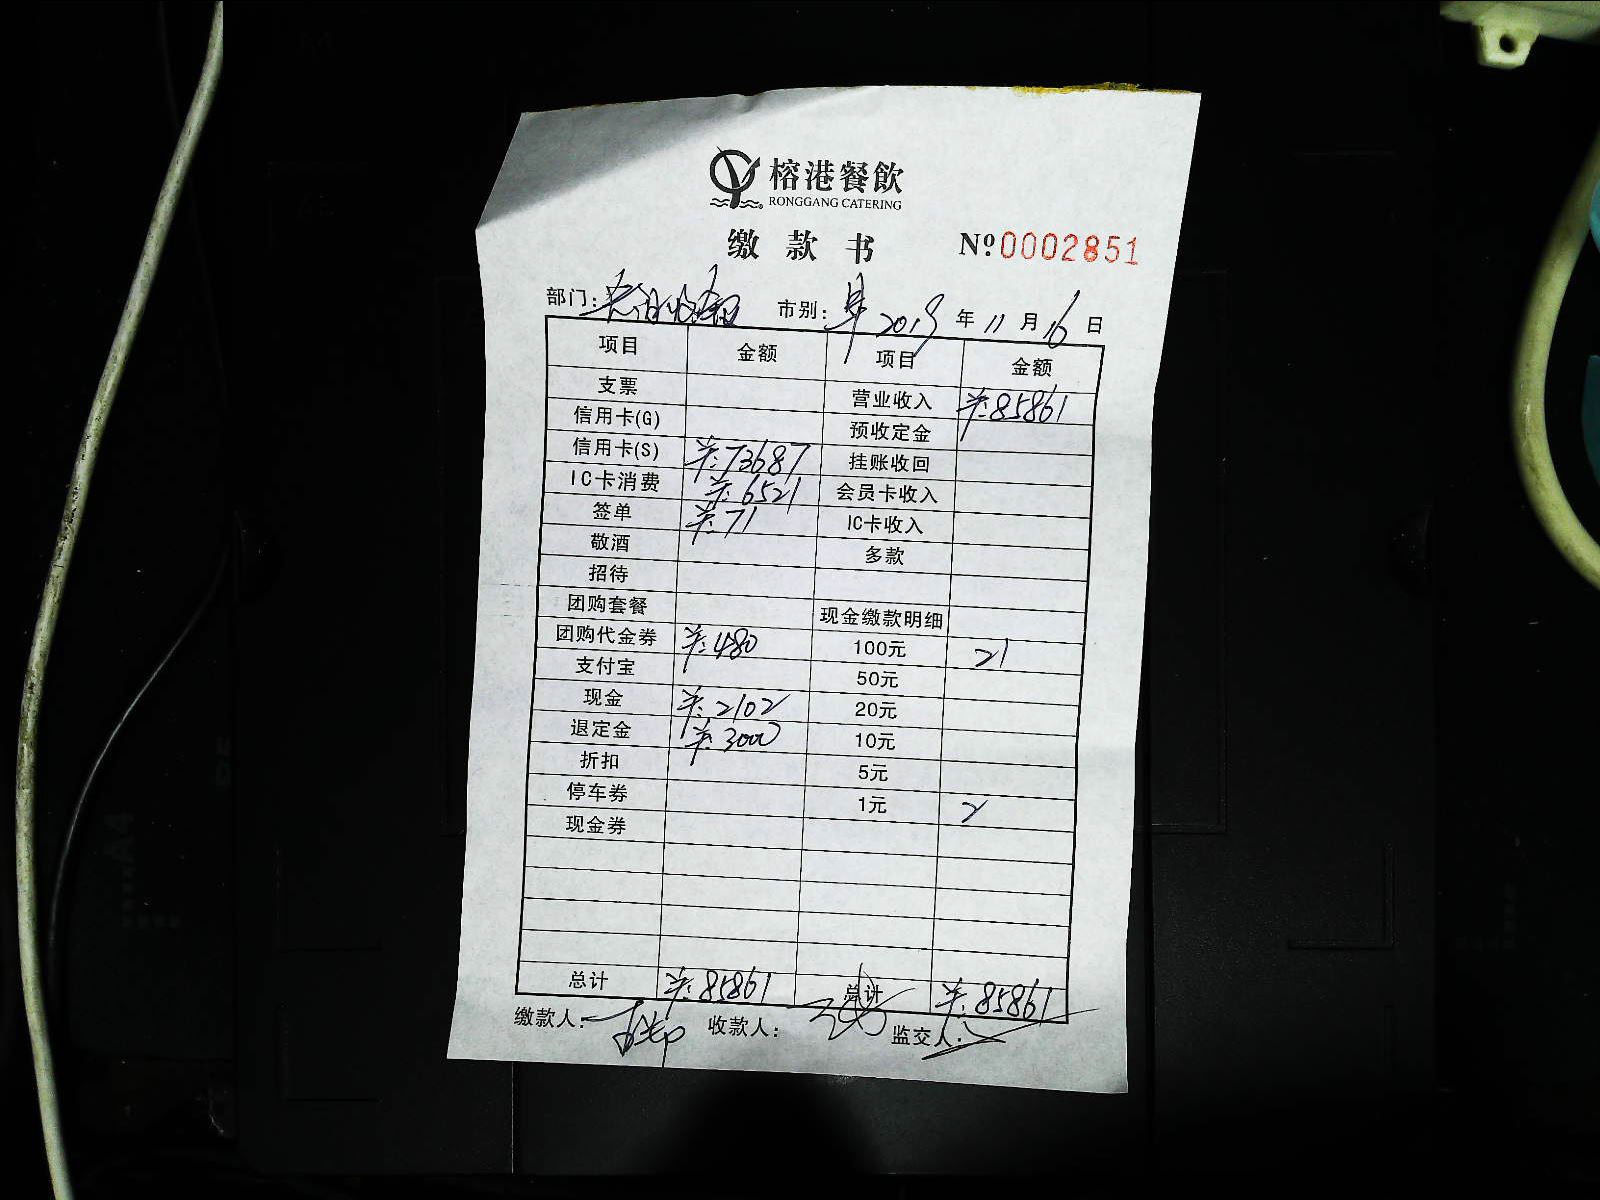 榕港餐飲
RONGGANG CATERING
缴款书 Nº0002851
部门: 市别: 早 2019 年 11 月 16 日
项目 金额 项目 金额
支票 营业收入 羊:85861
信用卡(G) 预收定金
信用卡(S) 羊:73687 挂账收回
IC卡消费 羊:6521 会员卡收入
签单 羊:71 IC卡收入
敬酒 多款
招待
团购套餐 现金缴款明细
团购代金券 羊:480 100元 21
支付宝 50元
现金 羊:2102 20元
退定金 羊:3000 10元
折扣 5元
停车券 1元 2
现金券
总计 羊:85861 总计 羊:85861
缴款人: 收款人: 监交人: